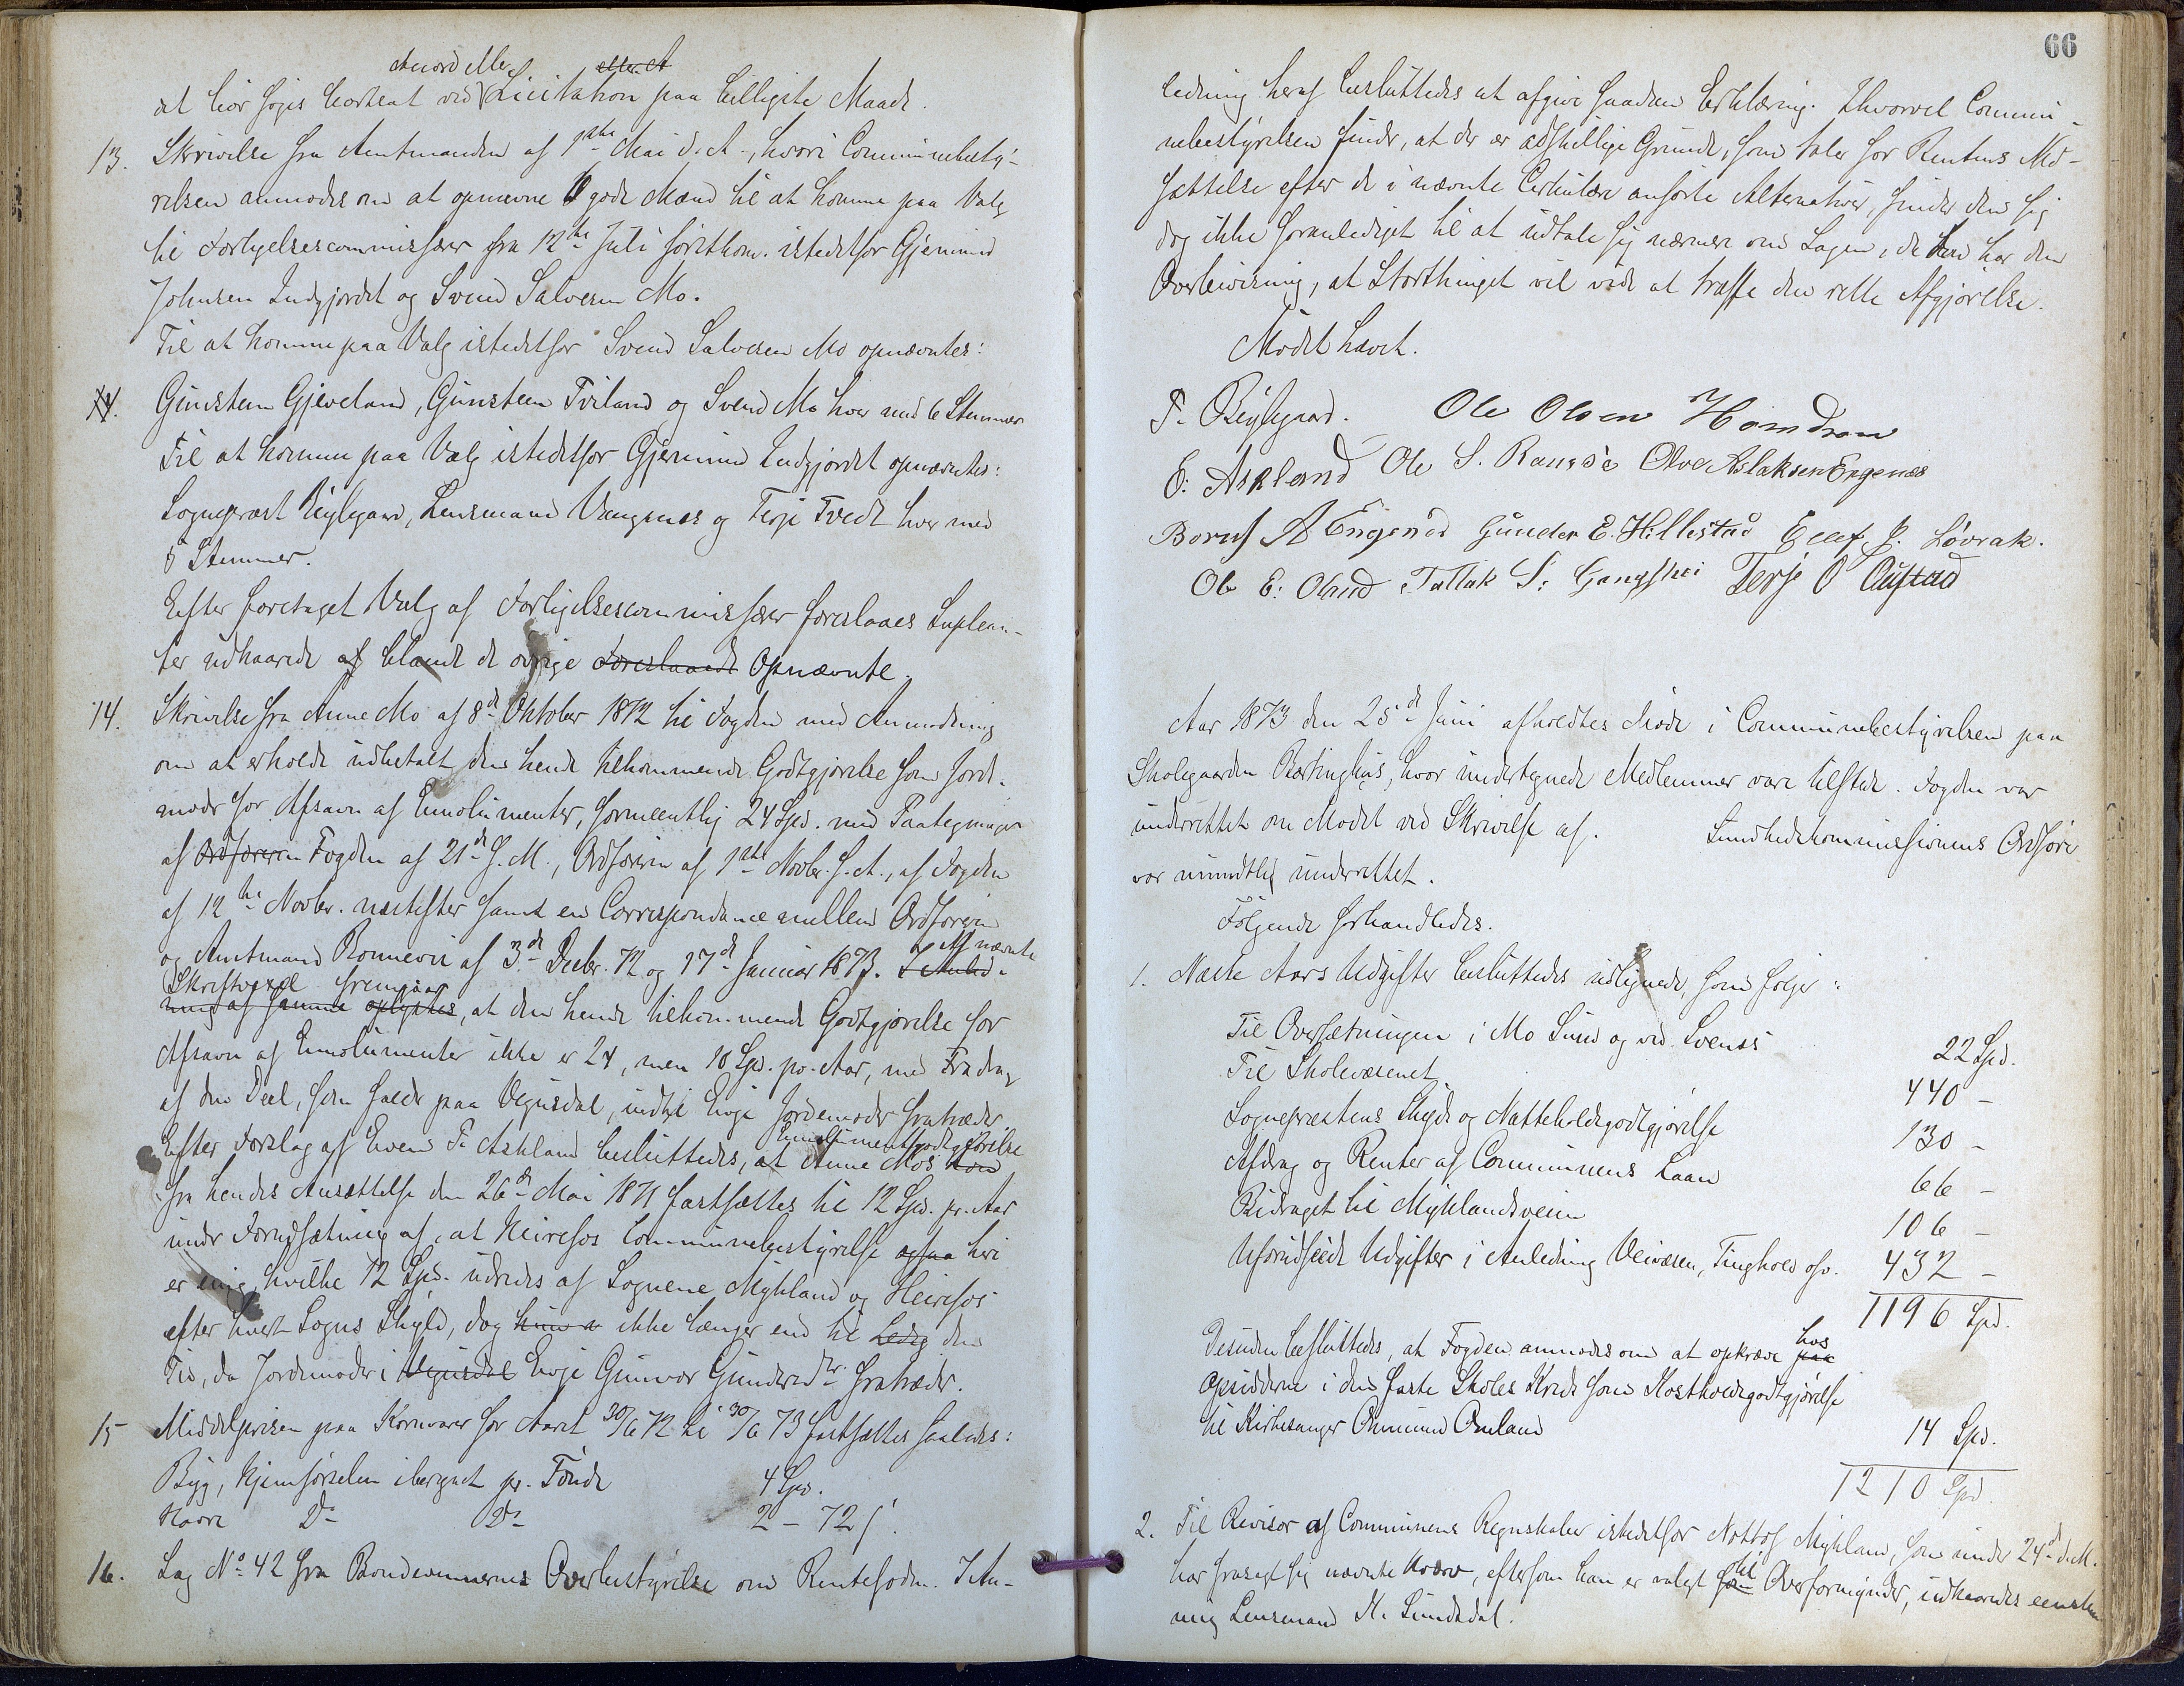 Akkord eller
at bør søges bortsat ved Licitation paa billigste Maade.
13. Skrivelse fra Amtmanden af 1ste Mai d. A., hvori Communebesty-
relsen anmodes om at opnævne 6 gode Mænd til at komme paa Valg
til Forligelsescommissær fra 12te Juli førstkom. istedetfor Gjermund
Johnsen Indgjordet og Svend Salvesen Mo.
Til at komme paa Valg istedetfor Svend Salvesen Mo opnævntes:
Gunsteen Gjeveland, Gunsteen Tveland og Svend Mo hver med 6 Stemmer
Til at komme paa Valg istedetfor Gjermund Indgjordet opnævntes:
Sognepræst Rygegaard, Lensmand Vangsnes og Terje Tvedt hver med
5 Stemmer.
Efter foretaget Valg af Forligelsescommissær foreslaaes Suplean-
ter udkaarede af blandt de øvrige Foreslaaede Opnævnte.
14. Skrivelse fra Anne Mo af 8de Oktober 1872 til Fogden med Anmodning
om at erholde udbetalt den hende tilkommende Godtgjørelse som Jord-
moder for Afsavn af Emolumenter, formeentlig 24 Spd. med Paategninger
af Ordføreren Fogden af 21de s. M., Ordføreren af 1ste Novbr. s. A., af Fogden
af 12te Novbr. næstefter samt en Correspondance mellem Ordføreren
og Amtmand Bonnevie af 3de Decbr. 72 og 17de Januar 1873. I Anled- Af nævnte
Skriftvexel fremgaar
ning af samme oplystes, at den hende tilkommende Godtgjørelse for
Afsavn af Emolumenter ikke er 24, men 18 Spd. pr. Aar, med Fradrag
af den Deel, som falder paa Vegusdal, indtil Enge Jordemoder fratræder.
Efter Forslag af Even T. Askland besluttedes, at Anne Mos Løn Emolumentgodtgjørelse
fra hendes Ansættelse den 26de Mai 1871 fastsættes til 12 Spd. pr. Aar
under Forudsætning af, at Heirefos Communebestyrelse ogsaa heri
er enig, hvilke 12 Spd. udredes af Sognene Mykland og Heirefos
efter hvert Sogns Skyld, dog hun er ikke længer end til Ledig den
Tid, da Jordemoder i Vegusdal Enge Gunvor Gundersdtr. fratræder.
15 Middelprisen paa Kornvarer for Aaret 30/6 72 til 30/6 73 fastsættes saaledes:
Byg, Hjemførselen iberegnet pr. Tønde 4 Spd.
Havre Do Do 2 - 72 s.
16. Sag No. 42 fra Bondevennernes Overbestyrelse om Rentefoden. I An-
66
ledning heraf besluttedes at afgive saadan Erklæring. Ihvorvel Commu-
nebestyrelsen finder, at der er adskillige Grunde, som taler for Rentens Ned-
sættelse efter de i nævnte Cirkulære anførte Alternativer, finder den sig
dog ikke foranlediget til at udtale sig nærmere om Sagen, da den har den
Overbeviisning, at Storthinget vil vide at træffe den rette Afgjørelse.
Mødet hævet.
T. Ole Olsen Homdrom
E: Askland Ole S. Ramsé Olve Aslaksen Engenes
A Engenes Gunder E. Hillestad Ellef J. Løvrak.
Ole E: Oland Tallak S: Gangshei Terje O Austad
Aar 1873 den 25de Juni afholdtes Møde i Communebestyrelsen paa
Skolegaarden Bærtinghus, hvor undertegnede Medlemmer vare tilstede. Fogden var
underrettet om Mødet ved Skrivelse af. Sundhedskommissionens Ordfører
var mundtlig underrettet.
Følgende forhandledes.
1. Næste Aars Udgifter besluttedes udlignede, som følger:
Til Oversætningen i Mo Sund og ved Svenes 22 Spd.
Til Skolevæsenet 440 -
Sognepræstens Skyds og Natteholdsgodtgjørelse 130 -
Afdrag og Renter af Communens Laan 66 -
Bidraget til Myklandsveien 106 -
Uforudseede Udgifter i Anledning Veivæsen, Tinghold osv. 432 -
1196 Spd.
Desuden besluttedes, at Fogden anmodes om at opkræve paa hos
Opsidderne i den faste Skoles Kreds som Kostholdsgodtgjørelse
til Kirkesanger Omund Omland 14 Spd.
1210 Spd.
2. Til Revisor af Communens Regnskaber istedetfor Nottof Mykland, som under 24de d. M.
har frasagt sig nævnte Hverv, eftersom han er valgt som til Overformynder, udkaaredes eenstem
mig Lensmand N. Sundsdal.